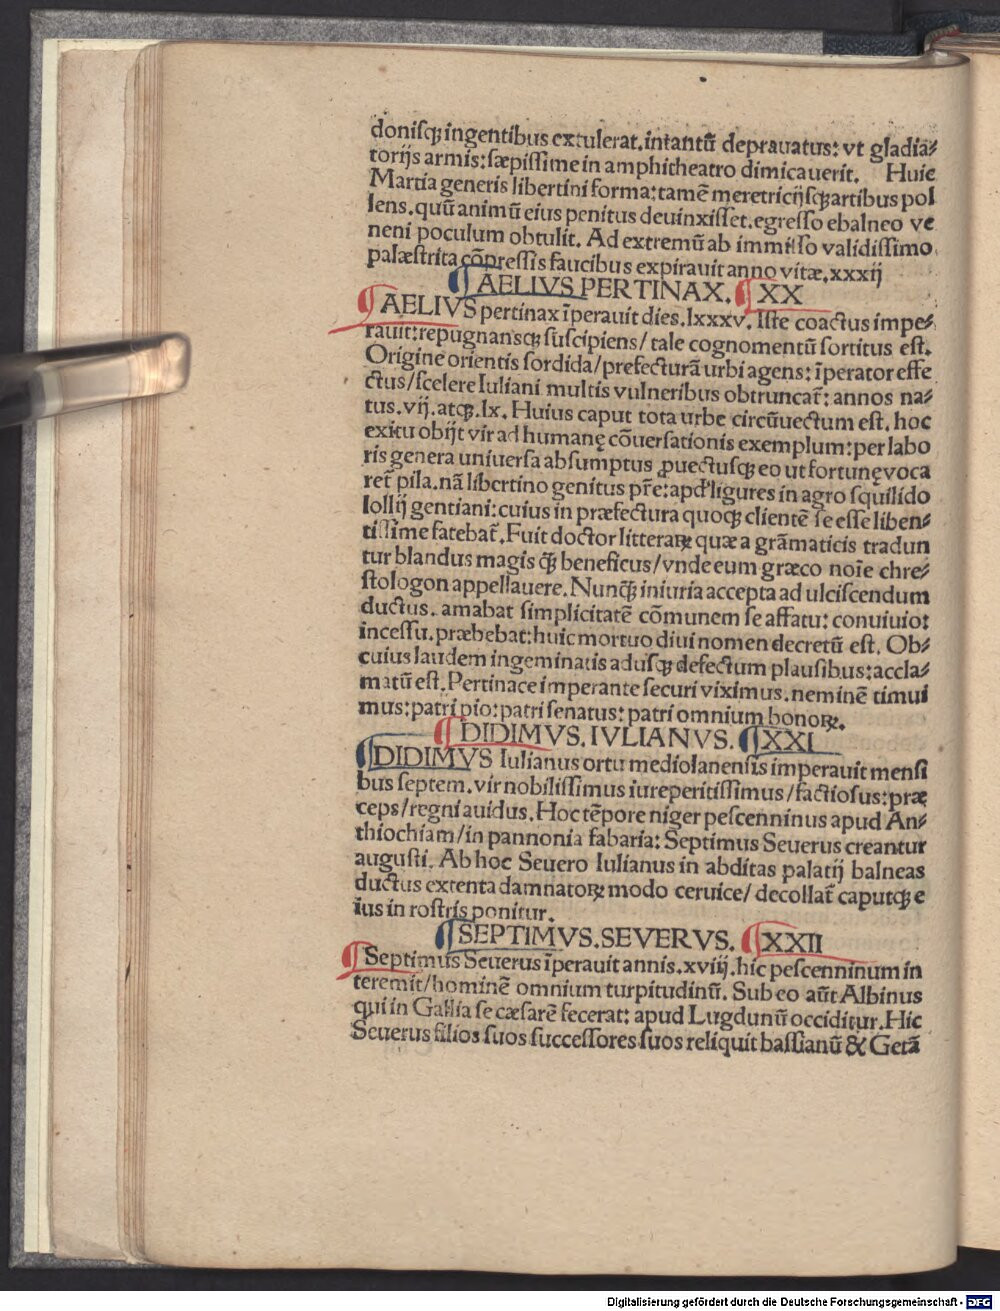 doniſqꝫ ingentibus extulerat. intantū deprauatus: vt gladia⸗
torijs armis: ſæpiſſime in amphitheatro dimicauerit. Huic
Martia generis libertini forma: tamē meretricijſqꝫ artibus pol
lens. quū animū eius penitus deuinxiſſet. egreſſo ebalneo ve
neni poculum obtulit. Ad extremū ab immiſſo validiſſimo
palæſtrita cōpreſſis faucibus expirauit anno vitæ. xxxij
¶ AELIVS PERTINAX. ¶ XX
¶ AELIVS pertinax īperauit dies. lxxxv. Iſte coactus impe⸗
rauit: repugnansqꝫ ſuſcipiens/ tale cognomentū ſortitus eſt.
Origine orientis ſordida/ prefecturā urbi agens: īperator effe
ctus/ ſcelere Iuliani multis vulneribus obtruncat̄: annos na⸗
tus. vij. atqꝫ. lx. Huius caput tota urbe circūuectum eſt. hoc
exitu obijt vir ad humanę cōuerſationis exemplum: per labo
ris genera uniuerſa abſumptus ꝓuectuſqꝫ eo ut fortunę voca
ret̄ pila. nā libertino genitus pr̄e: apd' ligures in agro ſquilido
lollij gentiani: cuius in præfectura quoqꝫ clientē ſe eſſe liben⸗
tiſſime fatebat̄. Fuit doctor litteraꝝ quæ a grāmaticis tradun
tur blandus magis ꝙ̄ beneficus/ vnde eum græco noīe chre⸗
ſtologon appellauere. Nunꝙ̄ iniuria accepta ad ulciſcendum
ductus. amabat ſimplicitatē cōmunem ſe affatu: conuiuio:
inceſſu. præbebat: huic mortuo diui nomen decretū eſt. Ob⸗
cuius laudem ingeminatis aduſqꝫ defectum plauſibus: accla⸗
matū eſt. Pertinace imperante ſecuri viximus. neminē timui
mus: patri pio: patri ſenatus: patri omnium honoꝝ.
¶ DIDIMVS. IVLIANVS. ¶ XXI
¶ DIDIMVS Iulianus ortu mediolanenſis imperauit menſi
bus ſeptem. vir nobiliſſimus iureperitiſſimus/ factioſus: præ
ceps/ regni auidus. Hoc tēpore niger peſcenninus apud An⸗
thiochiam/ in pannonia fabaria: Septimus Seuerus creantur
auguſti. Ab hoc Seuero Iulianus in abditas palatij balneas
ductus extenta damnatoꝝ modo ceruice/ decollat̄ caputqꝫ e
ius in roſtris ponitur.
¶ SEPTIMVS. SEVERVS. ¶ XXII
¶ Septimus Seuerus īperauit annis. xviij. hic peſcenninum in
teremit/ hominē omnium turpitudinū. Sub eo aūt Albinus
qui in Gallia ſe cæſarē fecerat: apud Lugdunū occiditur. Hic
Seuerus filios ſuos ſucceſſores ſuos reliquit baſſianū & Getā
Digitalisierung gefördert durch die Deutsche Forschungsgemeinschaft - DFG